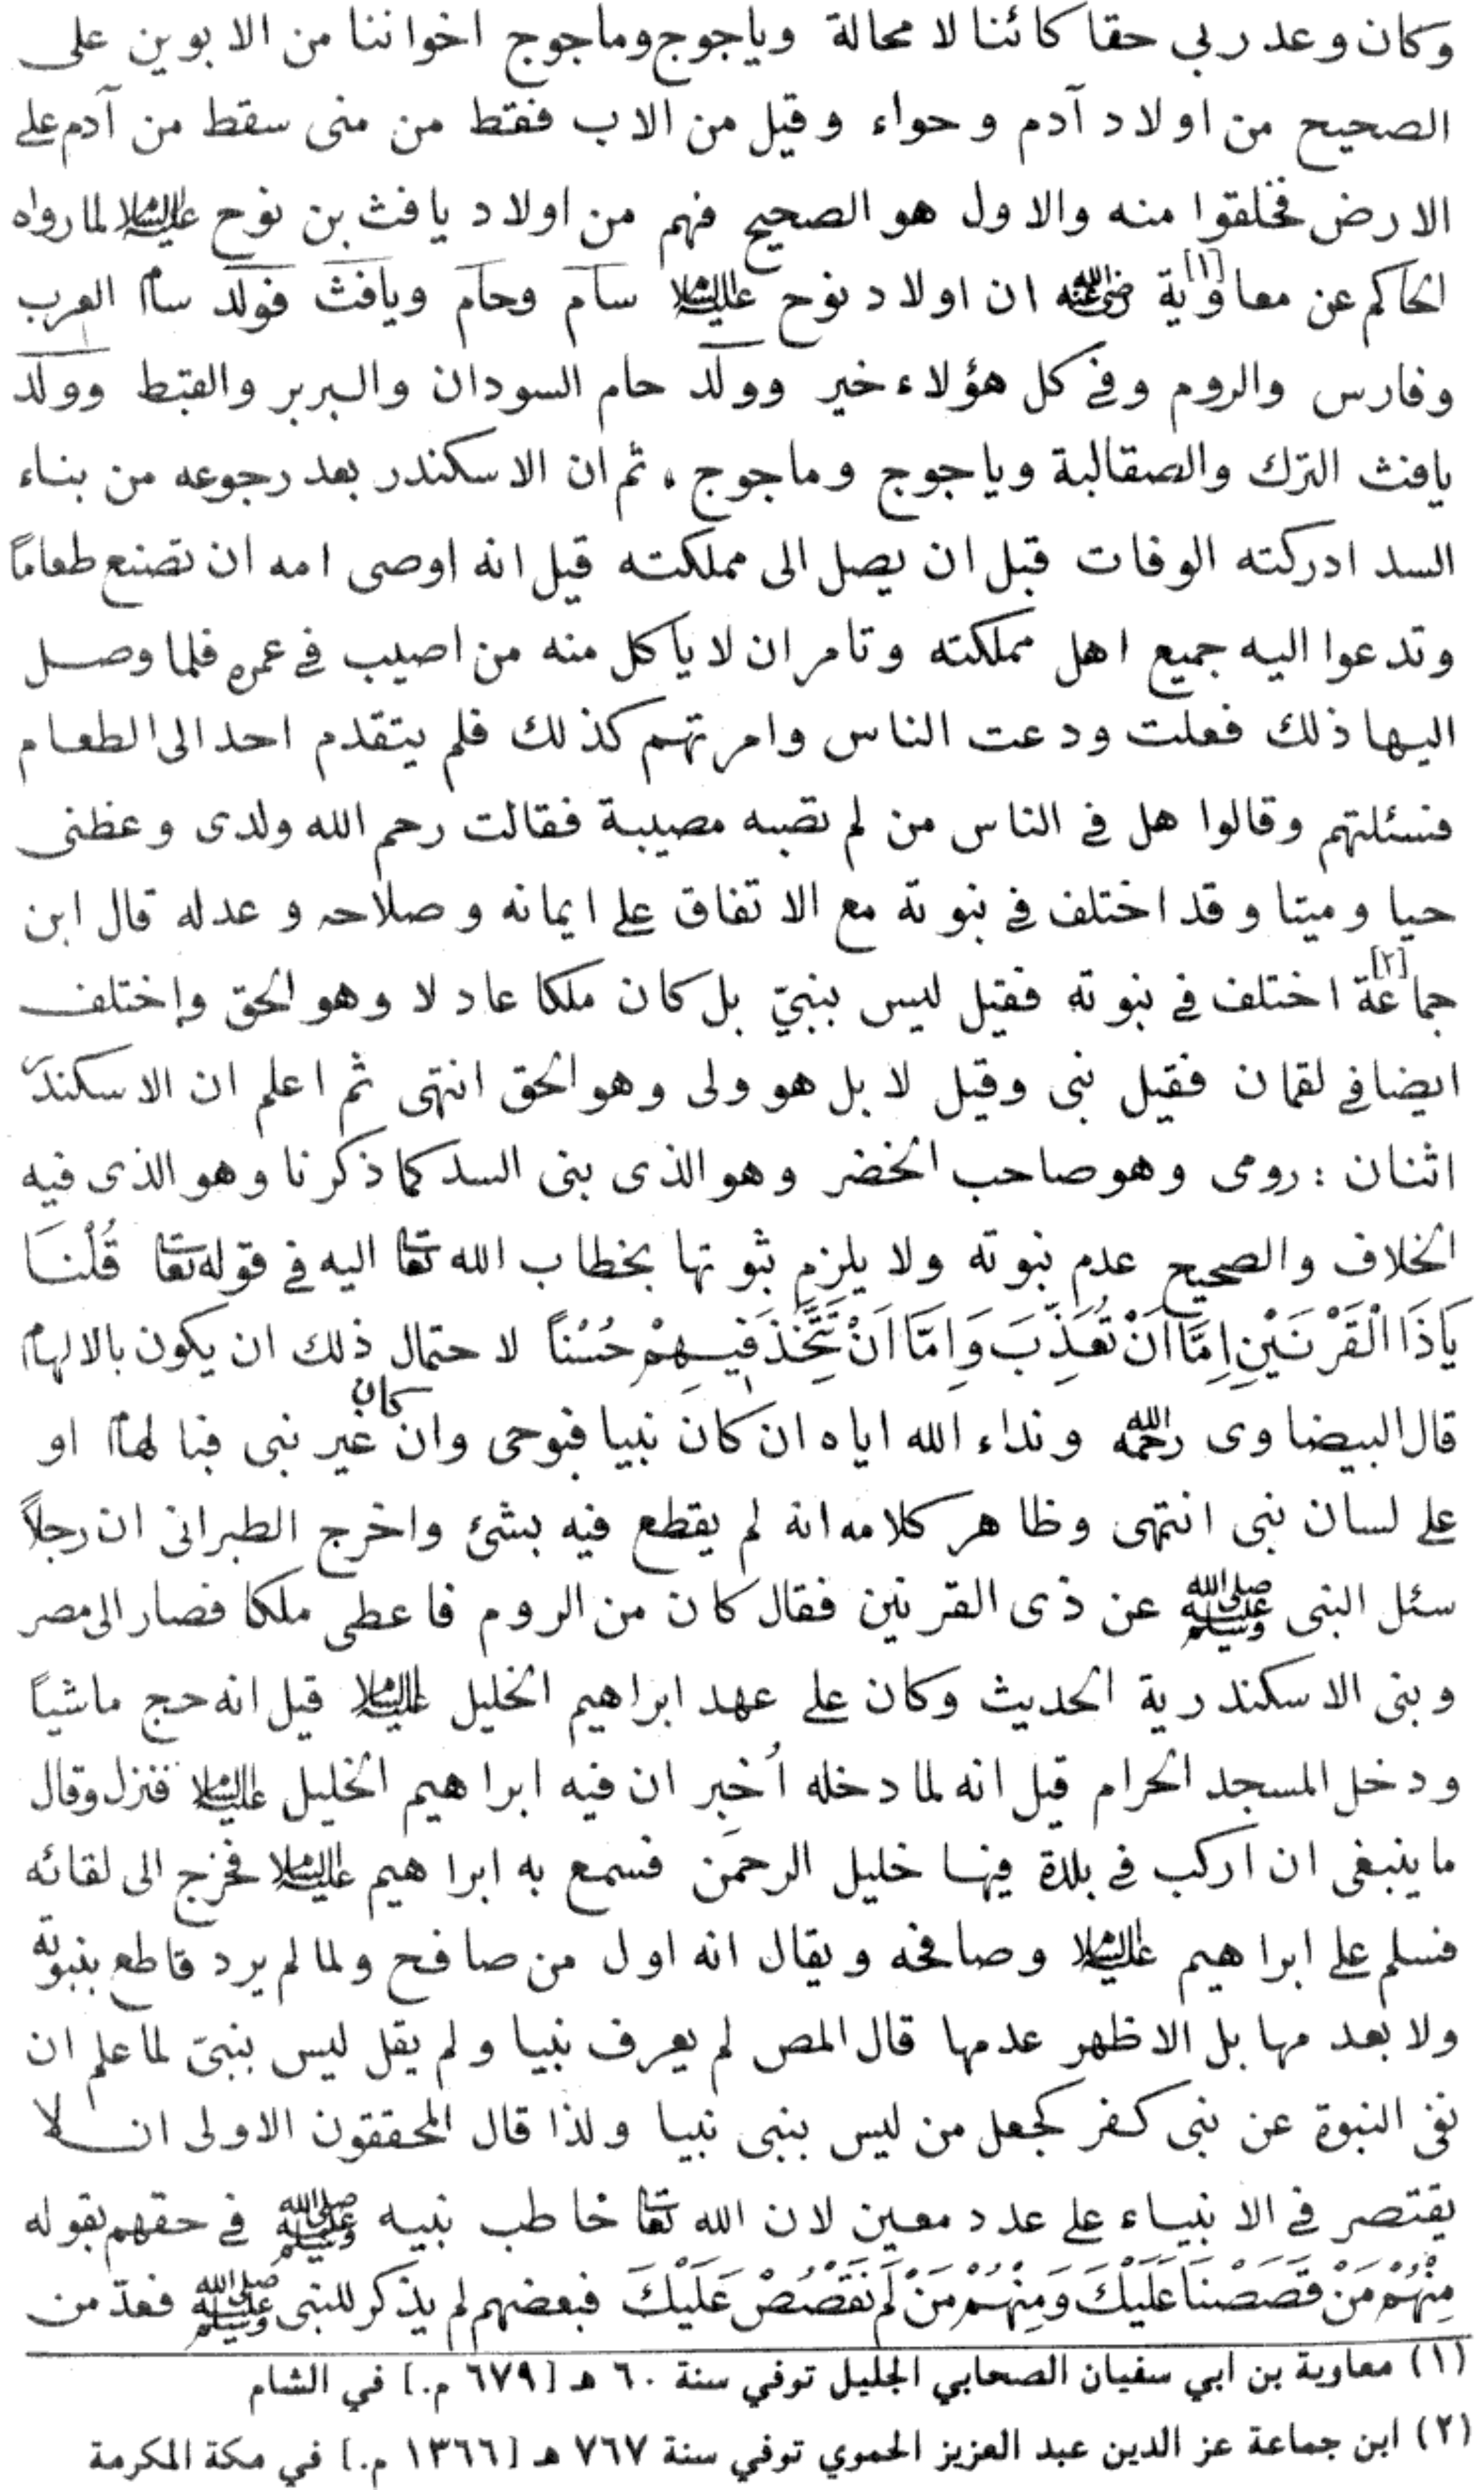 وكان وعد ربي حقا كائنا لا محالة وياجوج وماجوج اخواننا من الابوين على
الصحيح من اولاد آدم وحواء وقيل من الاب فقط من منى سقط من آدم على
الارض فخلقوا منه والاول هو الصحيح فهم من اولاد يافث بن نوح عليه السلام لما رواه
الحاكم عن معاوية [١] رضي الله عنه ان اولاد نوح عليه السلام سام وحام ويافث فولد سام العرب
وفارس والروم وفي كل هؤلاء خير وولد حام السودان والبربر والقبط وولد
يافث الترك والصقالبة وياجوج وماجوج ، ثم ان الاسكندر بعد رجوعه من بناء
السد ادركته الوفات قبل ان يصل الى مملكته قيل انه اوصى امه ان تصنع طعاماً
وتدعوا اليه جميع اهل مملكته وتامر ان لا يأكل منه من اصيب في عمره فلما وصل
اليها ذلك فعلت ودعت الناس وامرتهم كذلك فلم يتقدم احد الى الطعام
فسئلتهم وقالوا هل في الناس من لم تصبه مصيبة فقالت رحم الله ولدى وعظنى
حيا وميتا وقد اختلف في نبوته مع الاتفاق على ايمانه وصلاحه وعدله قال ابن
جماعة [٢] اختلف في نبوته فقيل ليس بنبيّ بل كان ملكا عادلا وهو الحق واختلف
ايضا في لقمان فقيل نبى وقيل لا بل هو ولى وهو الحق انتهى ثم اعلم ان الاسكندر
اثنان : رومى وهو صاحب الخضر وهو الذى بنى السد كما ذكرنا وهو الذى فيه
الخلاف والصحيح عدم نبوته ولا يلزم ثبوتها بخطاب الله تعا اليه في قوله تعا قُلْنَا
يَاذَا الْقَرْنَيْنِ اِمَّا اَنْ تُعَذِّبَ وَاِمَّا اَنْ تَتَّخِذَ فِيهِمْ حُسْناً لاحتمال ذلك ان يكون بالالهام
قال البيضاوى رحمه الله ونداء الله اياه ان كان نبيا فبوحى وان كان غير نبى فبالهام او
على لسان نبى انتهى وظاهر كلامه انه لم يقطع فيه بشئ واخرج الطبرانى ان رجلاً
سئل النبى صلى الله عليه وسلم عن ذى القرنين فقال كان من الروم فاعطى ملكا فصار الى مصر
وبنى الاسكندرية الحديث وكان على عهد ابراهيم الخليل عليه السلام قيل انه حج ماشياً
ودخل المسجد الحرام قيل انه لما دخله أُخبر ان فيه ابراهيم الخليل عليه السلام فنزل وقال
ما ينبغى ان اركب في بلدة فيها خليل الرحمن فسمع به ابراهيم عليه السلام فخرج الى لقائه
فسلم على ابراهيم عليه السلام وصافحه ويقال انه اول من صافح ولما لم يرد قاطع بنبوته
ولا بعدمها بل الاظهر عدمها قال المص لم يعرف نبيا ولم يقل ليس بنبىّ لما علم ان
نفى النبوة عن نبى كفر كجعل من ليس بنبى نبيا ولذا قال المحققون الاولى ان لا
يقتصر في الانبياء على عدد معين لان الله تعا خاطب نبيه صلى الله عليه وسلم في حقهم بقوله
مِنْهُمْ مَنْ قَصَصْنَا عَلَيْكَ وَمِنْهُمْ مَنْ لَمْ نَقْصُصْ عَلَيْكَ فبعضهم لم يذكر للنبى صلى الله عليه وسلم فعدّ من
(١) معاوية بن ابي سفيان الصحابي الجليل توفي سنة ٦٠ هـ [٦٧٩ م.] في الشام
(٢) ابن جماعة عز الدين عبد العزيز الحموي توفي سنة ٧٦٧ هـ [١٣٦٦ م.] في مكة المكرمة